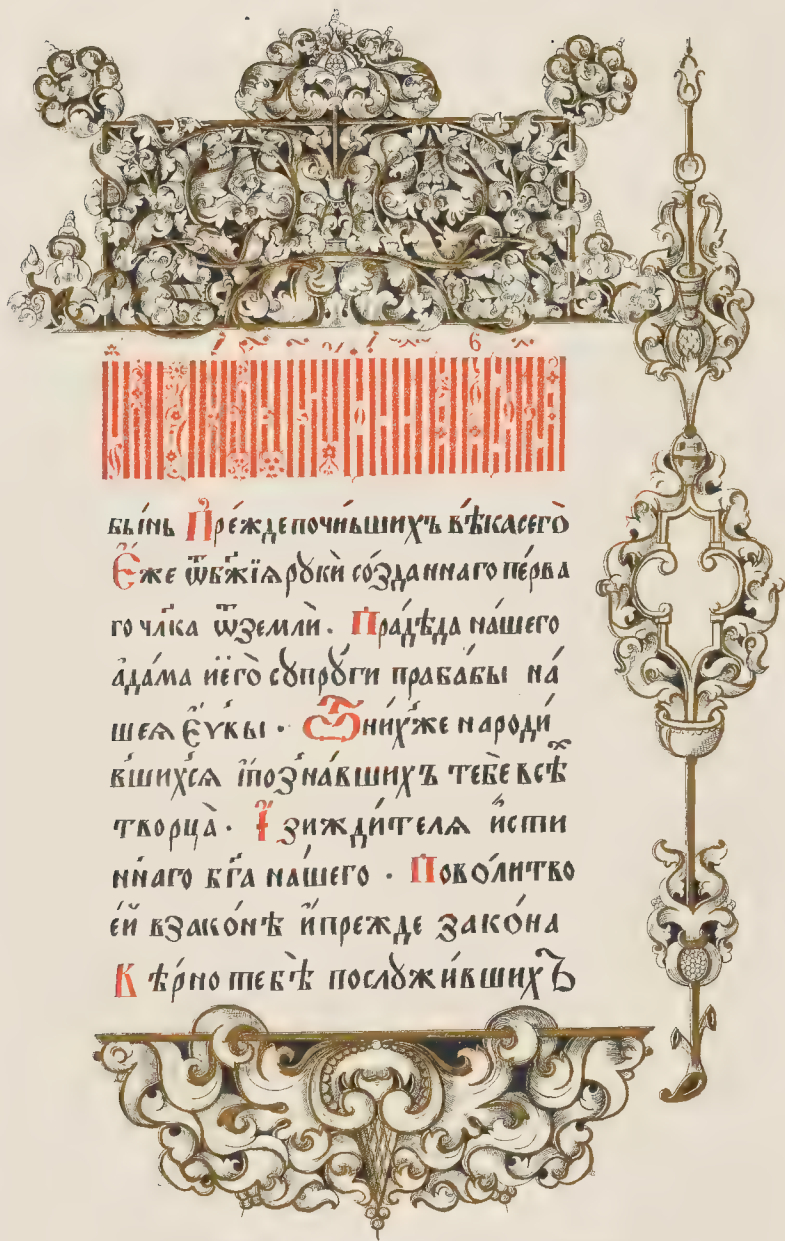 бы́нь Пре́жде почи́вшихъ вѣ́ка сего̀
Е҆́же ѿ бж҃їѧ рꙋкѝ со́зданнаго пе́рва
го чл҃ка ѿ землѝ. Пра́дѣда на́шего
а҆да́ма и҆ є҆го̀ сꙋпрꙋ́ги праба́бы на́
шеѧ Е҆́ѵвы · Ѿ ни́хже народи́
вшихсѧ і҆ позна́вшихъ тебѐ всѣⷯ
творца̀ · І҆ зижди́телѧ и҆́сти
ннаго бг҃а на́шего · По во́ли тво
е́й в зако́нѣ и҆ пре́жде зако́на
Вѣ́рно тебѣ̀ послꙋжи́вшихъ